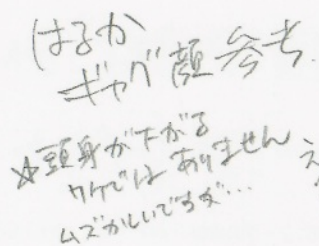 はるか
ギャグ顔参考
☆頭身が下がる
ワケではありません
ムズかしいですが…